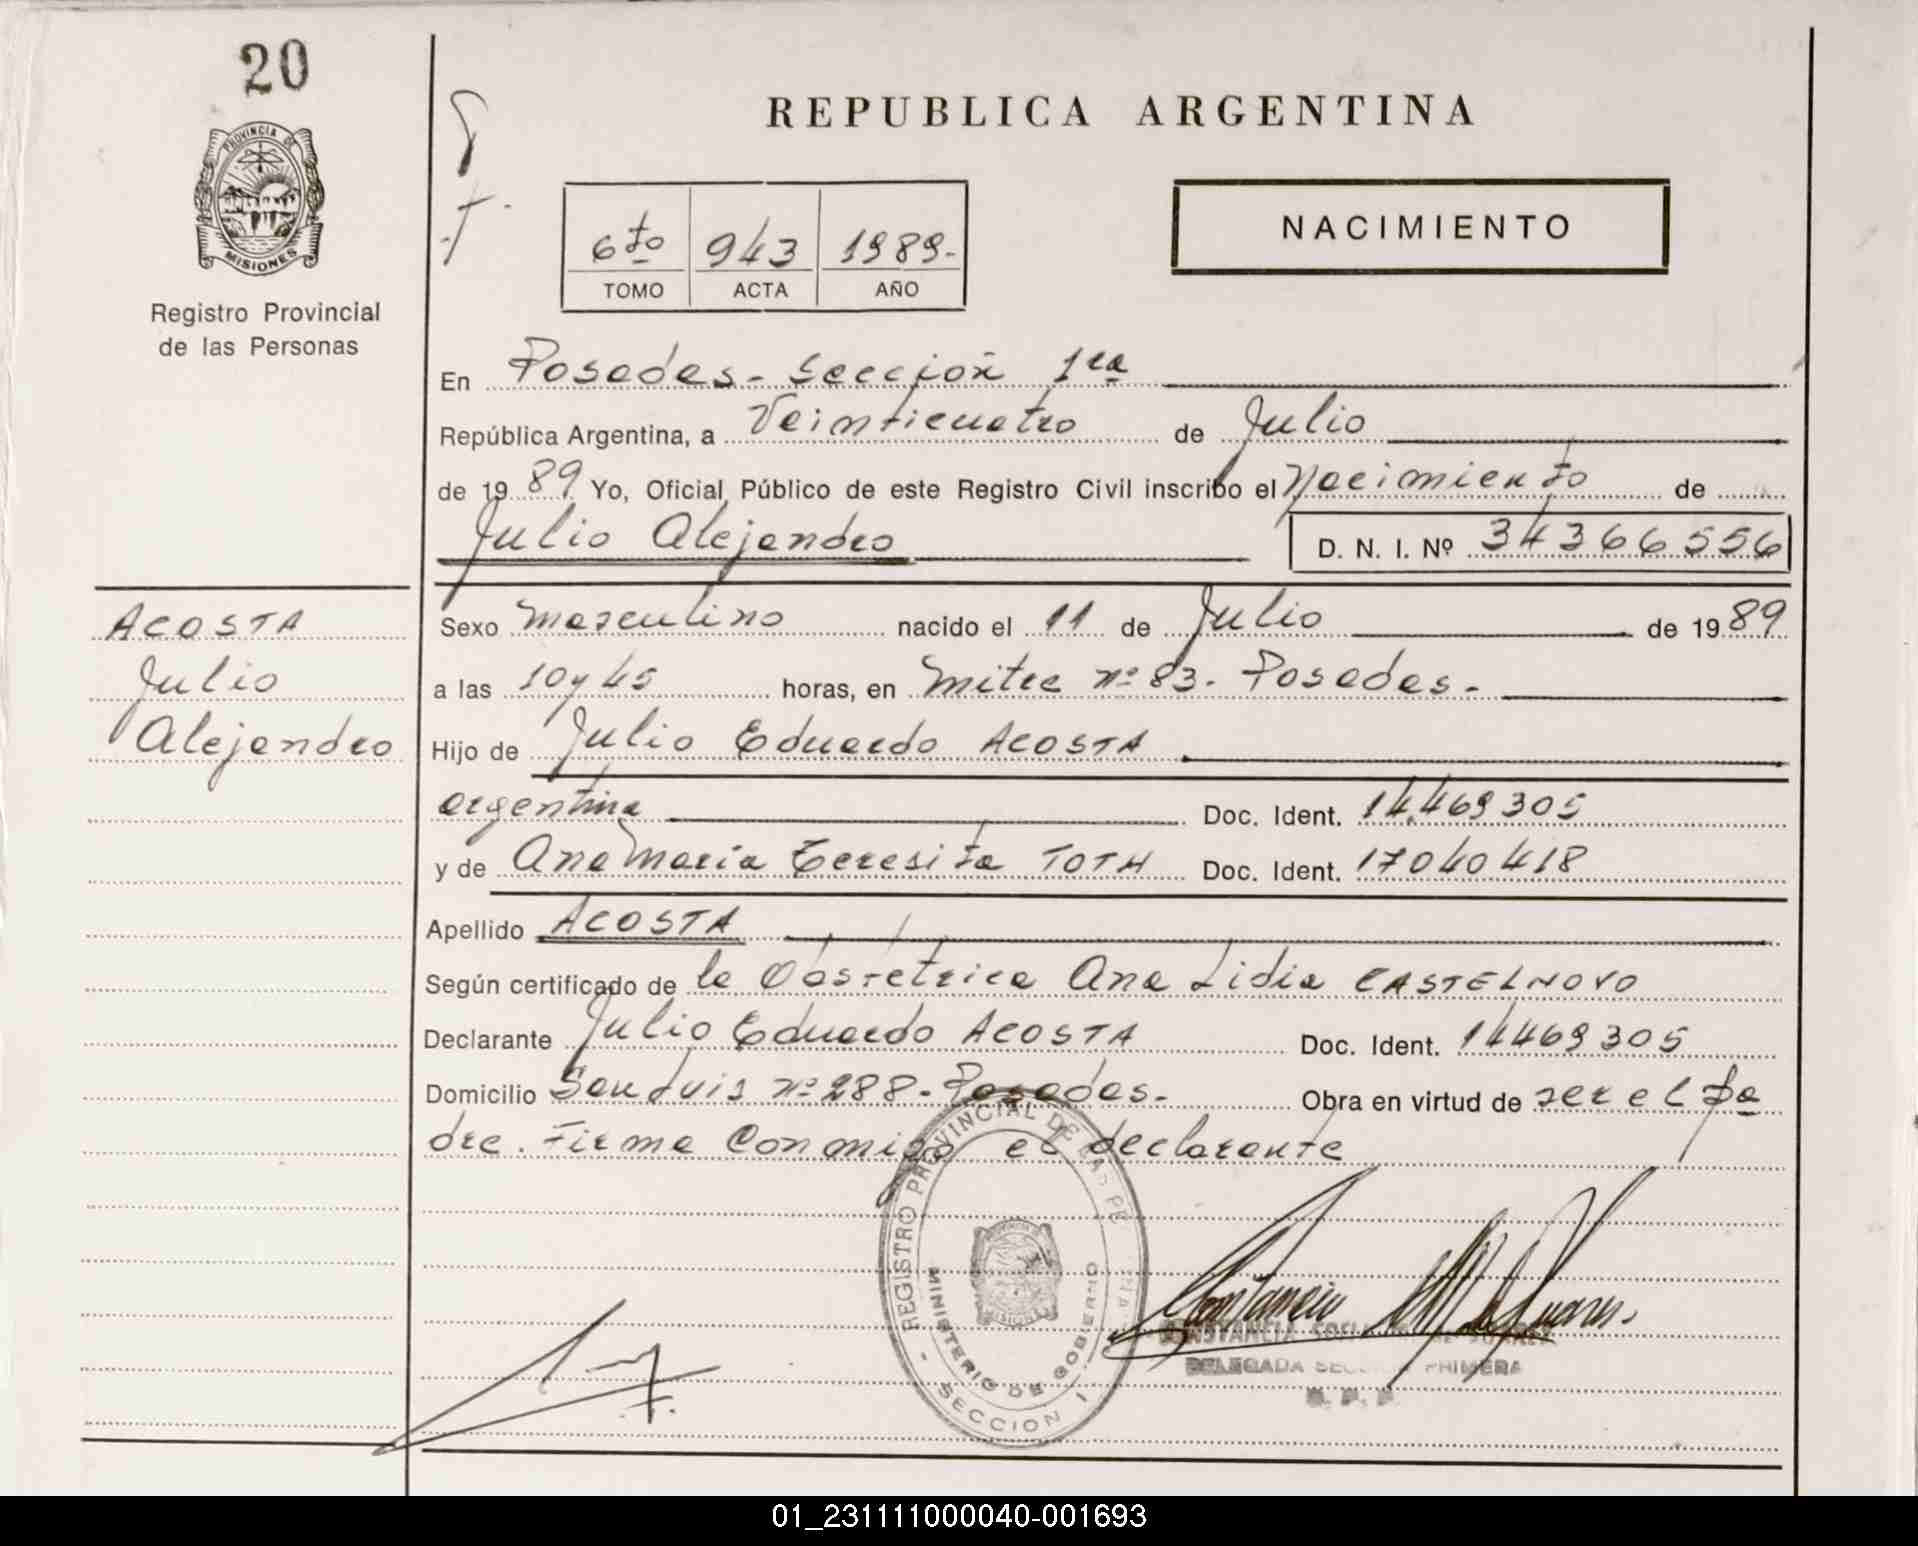 20
PROVINCIA DE
MISIONES
Registro Provincial
de las Personas
REPUBLICA ARGENTINA
NACIMIENTO
6to 943 1989.-
TOMO ACTA AÑO
En Posadas - Sección 1ra
República Argentina, a Veinticuatro de Julio
de 1989 Yo, Oficial Público de este Registro Civil inscribo el Nacimiento de
Julio Alejandro D. N. I. Nº 34366556
ACOSTA
Julio
Alejandro
Sexo masculino nacido el 11 de Julio de 1989
a las 10 y 45 horas, en Mitre nº 83. Posadas.-
Hijo de Julio Eduardo ACOSTA
argentina Doc. Ident. 14.469305
y de Ana María Teresita TOTH Doc. Ident. 17040418
Apellido ACOSTA
Según certificado de la Obstetrica Ana Lidia CASTELNOVO
Declarante Julio Eduardo ACOSTA Doc. Ident. 14469305
Domicilio San Luis nº 288. Posadas.- Obra en virtud de ser el pa
dre. Firma Conmigo el declarante
REGISTRO PROVINCIAL DE LAS
MINISTERIO DE GOBIERNO
SECCION I
DELEGADA PRIMERA
01_231111000040-001693